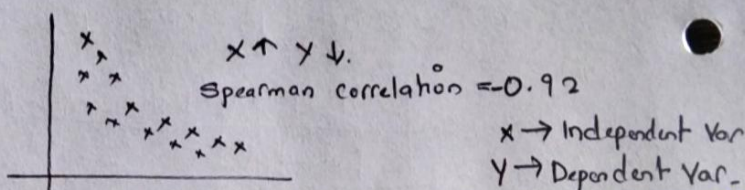 X↑ Y↓.
Spearman correlation =-0.92
X → Independent Var
Y → Dependent Var.